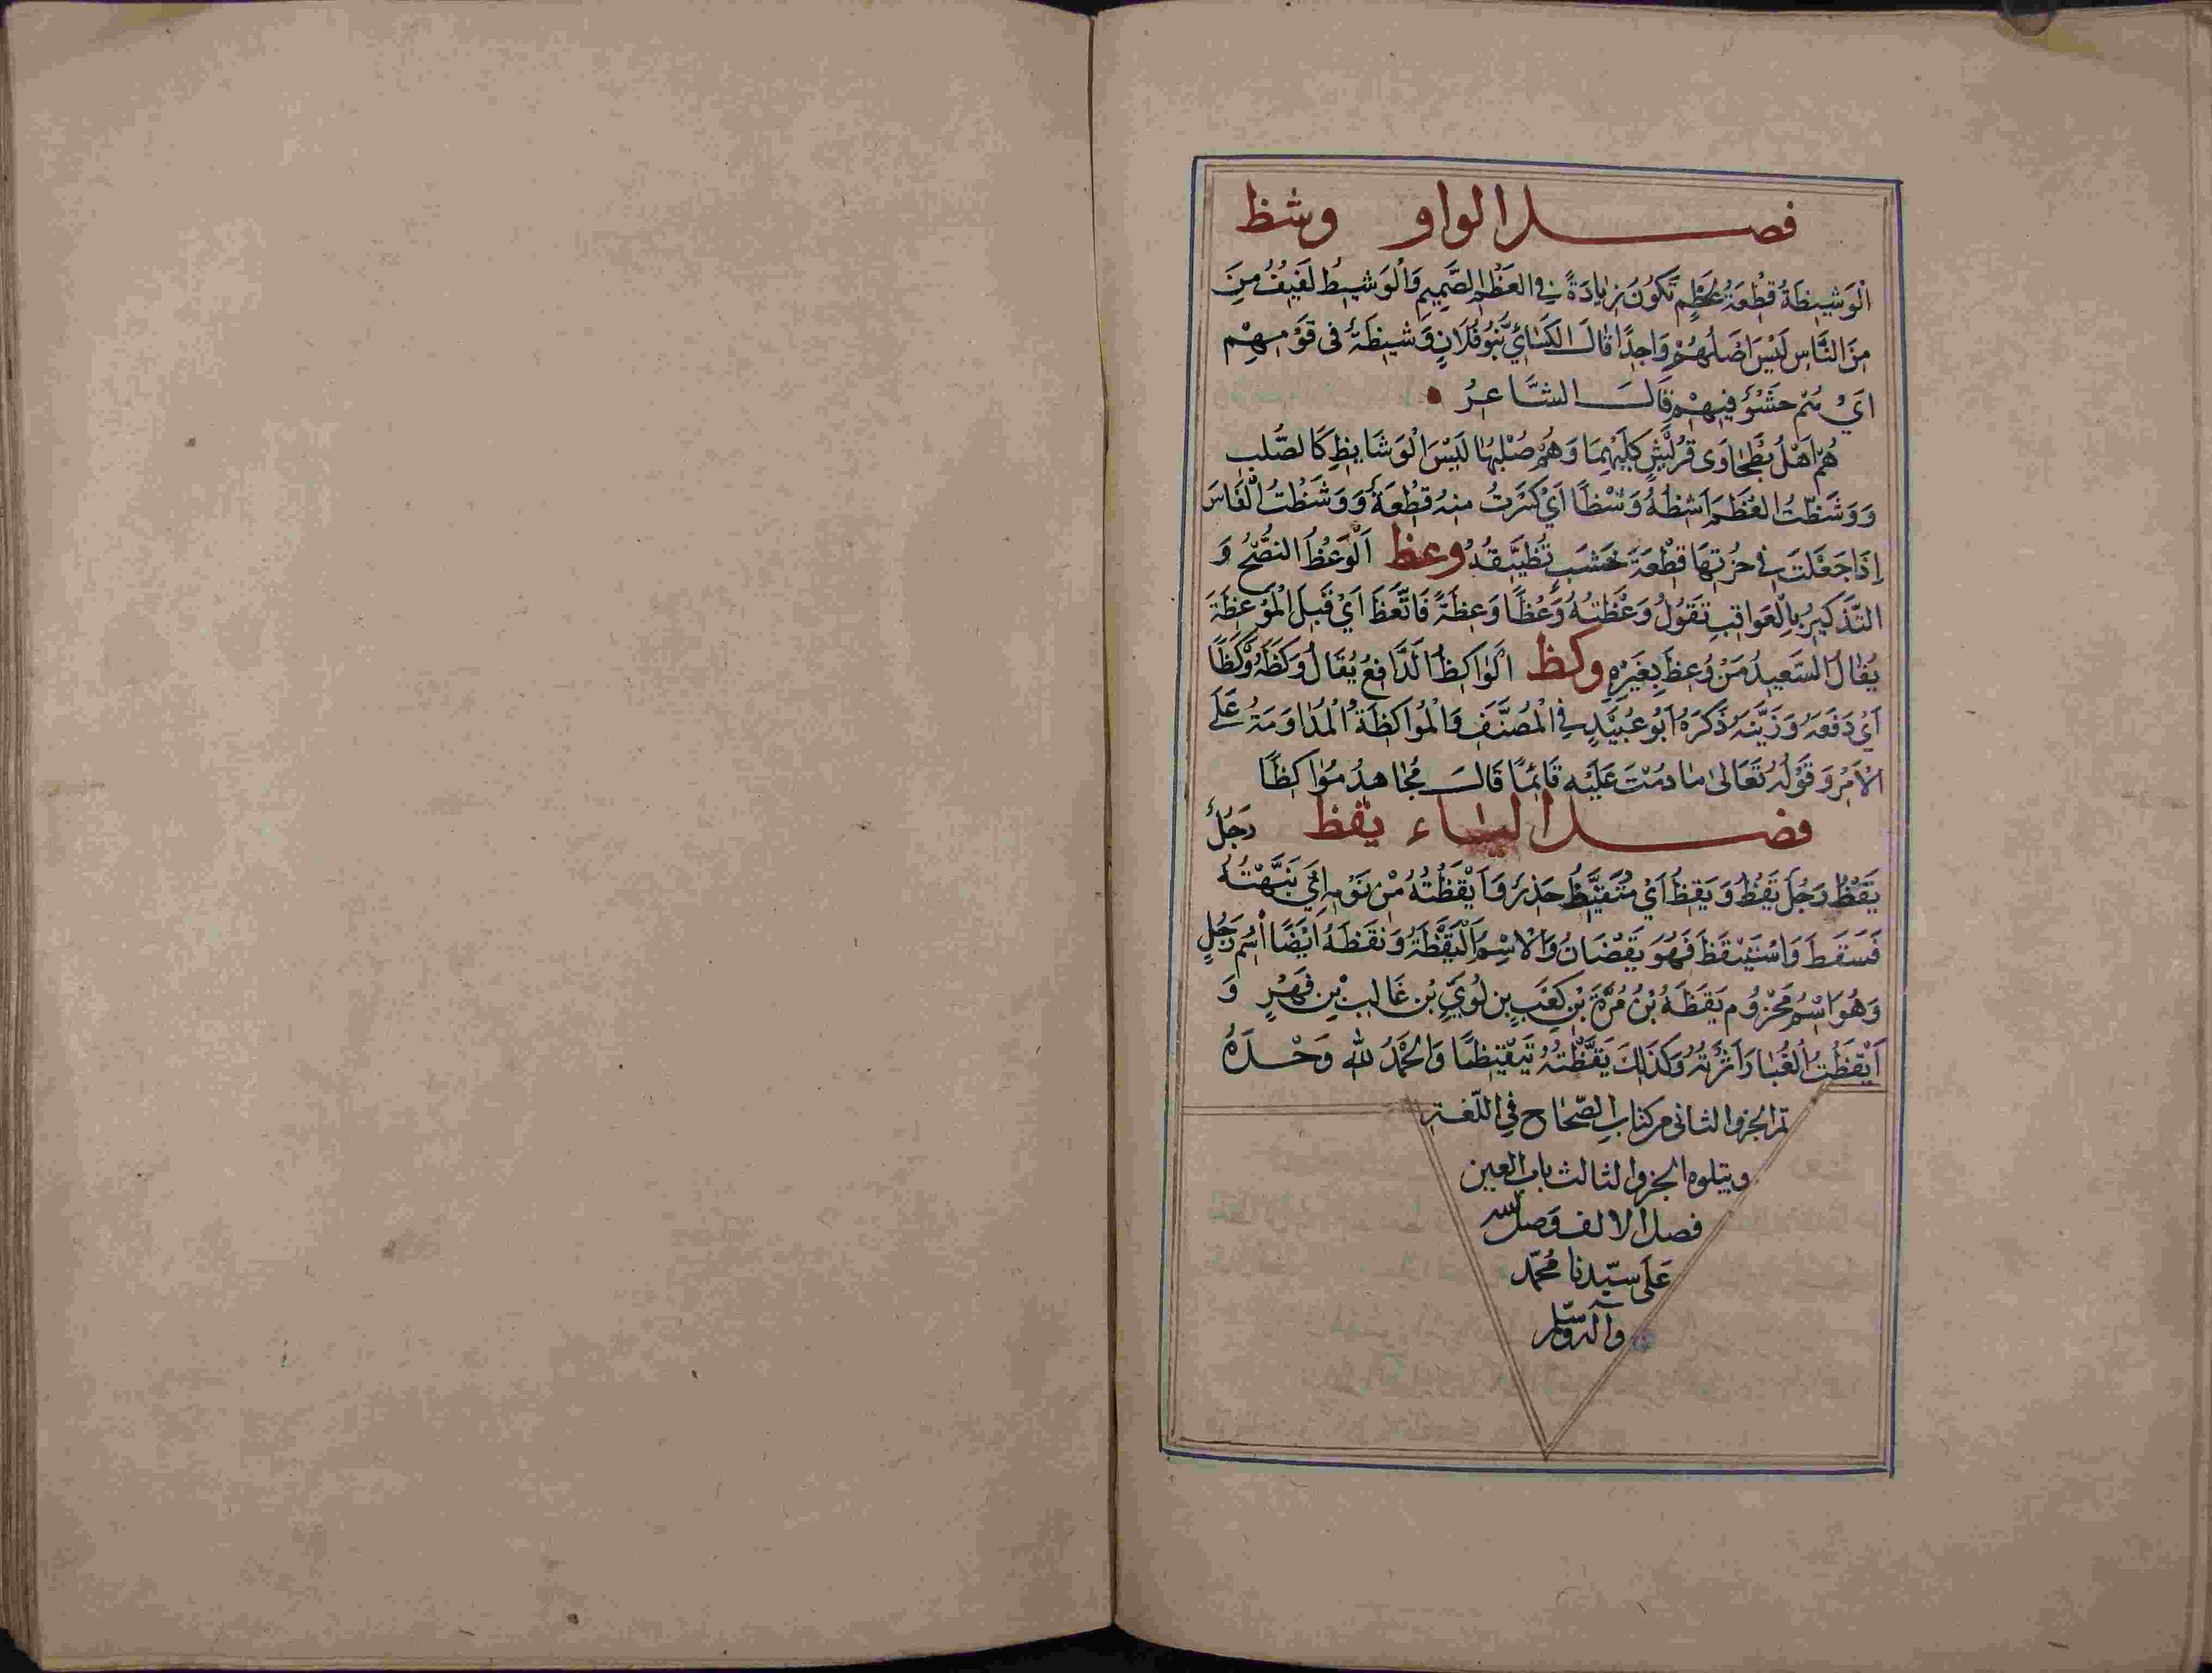 فصل الواو وشظ
الْوَشِيظَةُ قِطْعَةُ عَظْمٍ تَكُونُ زِيَادَةً فِي الْعَظْمِ الصَّمِيمِ وَالْوَشِيطُ لَفِيفٌ مِنَ
مِنَ النَّاسِ لَيْسَ اَصْلُهُمْ وَاحِدًا قَالَ الْكَسَائِيُّ بَنُو فُلَانٍ وَشِيظَةٌ فى قَوْمِهِمْ
اَيْ هُمْ حَشْوٌ فِيهِمْ قَالَ الشَّاعِرُ
هُمْ اَهْلُ بَطْحَاوَى قُرَيْشٍ كِلَيْهِمَا وَهُمْ صُلْبُهَا لَيْسَ الْوَشَايِظِ كَالصُّلْبِ
وَوَشَظْتُ الْعَظْمَ اَشِظُهُ وَشْظًا اَيْ كَسَرْتُ مِنْهُ قِطْعَةً وَوَشَظْتُ الْفَاسَ
اِذَا جَعَلْتَ فِي خُرْتِهَا قِطْعَةَ خَشَبٍ وعظ اَلْوَعْظُ النُّصْحُ وَ
التَّذْكِيرُ بِالْعَوَاقِبِ تَقُولُ وَعَظْتُهُ وَعْظًا وَعِظَةً فَاتَّعَظَ اَيْ قَبِلَ الْمَوْعِظَةَ
يُقَالُ السَّعِيدُ مَنْ وُعِظَ بِغَيْرِهِ وكظ الْوَاكِظُ الدَّافِعُ يُقَالُ وَكَظَهُ وَكْظًا
اَيْ دَفَعَهُ وَزَيَّنَهُ ذَكَرَهُ اَبُو عُبَيْدٍ فِي الْمُصَنَّفِ وَالْمُوَاكَظَةُ الْمُدَاوَمَةُ عَلَى
الْاَمْرِ وَقَوْلُهُ تَعَالىٰ مَا دُمْتَ عَلَيْهِ قَائِمًا قَالَ مُجَاهِدُ مُوَاكِظًا
فصل الياء يقظ رَجُلٌ
يَقُظٌ وَرَجُلٌ يَقُظٌ وَيَقِظٌ اَيْ مُتَيَقِّظٌ حَذِرٌ وَاَيْقَظْتُهُ مِنْ نَوْمِهِ اَيْ نَبَّهْتُهُ
فَسَقَطَ وَاسْتَيْقَظَ فَهُوَ يَقْضَانُ وَالْاسْمُ الْيَقْظَةُ وَنَقَظَهُ اَيْضًا اسْمُ رَجُلٍ
وَهُوَ اسْمُ مَخْزُوم يَقَظَهُ بْنُ مُرَّةَ بْنِ كَعْبِ بِن لُوَيِّ بْن غَالِبْ بْنِ فَهْرٍ وَ
اَيْقَظْتُ الْغُبَارَ اَثَرْتُهُ وَكَذٰلِكَ يَقَّظْتُهُ تَيْقِيظًا وَالْحَمْدُ لله وَحْدَهُ
تم الجزو الثانى من كتاب الصّحاح في اللّغة
ويتلوه الجزو الثالث باب العين
فصل الالف وَصلى الله
عَلَى سيّدنا مُحمّد
وآله وسلم